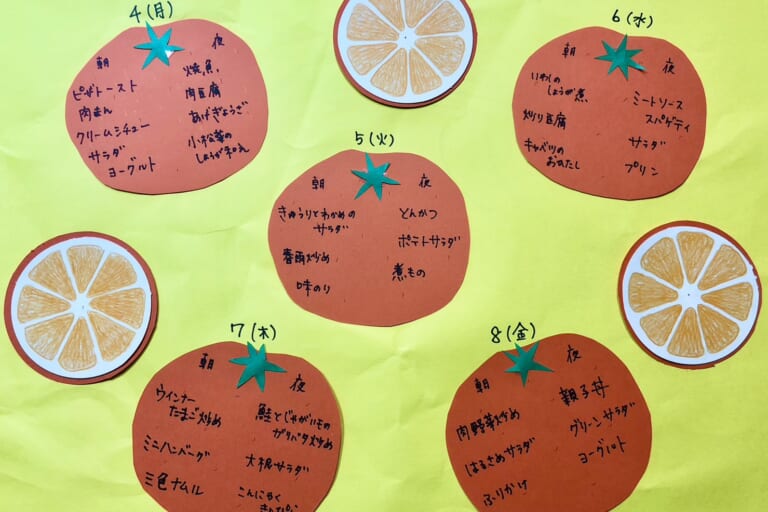 4(月)
朝
ピザトースト
肉まん
クリームシチュー
サラダ
ヨーグルト
夜
焼魚
肉豆腐
あげぎょうざ
小松菜の
しょうが和え
5(火)
朝
きゅうりとわかめの
サラダ
春雨炒め
味のり
夜
とんかつ
ポテトサラダ
煮もの
6(水)
朝
いわしの
しょうが煮
炒り豆腐
キャベツの
おひたし
夜
ミートソース
スパゲティ
サラダ
プリン
7(木)
朝
ウインナー
たまご炒め
ミニハンバーグ
三色ナムル
夜
鮭とじゃがいもの
ガリバタ炒め
大根サラダ
こんにゃく
きんぴら
8(金)
朝
肉野菜炒め
はるさめサラダ
ふりかけ
夜
親子丼
グリーンサラダ
ヨーグルト